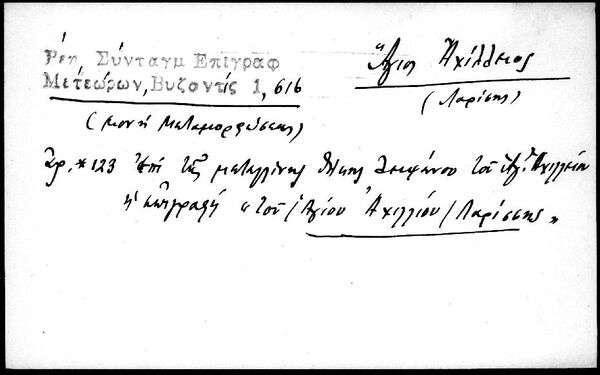 Βέη, Σύνταγμ Επίγραφ
Μετεώρων, Βυζαντίς 1, 616
(Μονή Μεταμορφώσεως)
Ἅγιος Ἀχίλλειος
(Λαρίσης)
Ἀρ. 123 Ἐπί τῆς μεταλλίνης θήκης λειψάνου τοῦ Ἁγ. Ἀχιλλείου
ἡ ἐπιγραφή "τοῦ / Ἁγίου Ἀχιλλίου / Λαρίσσης"